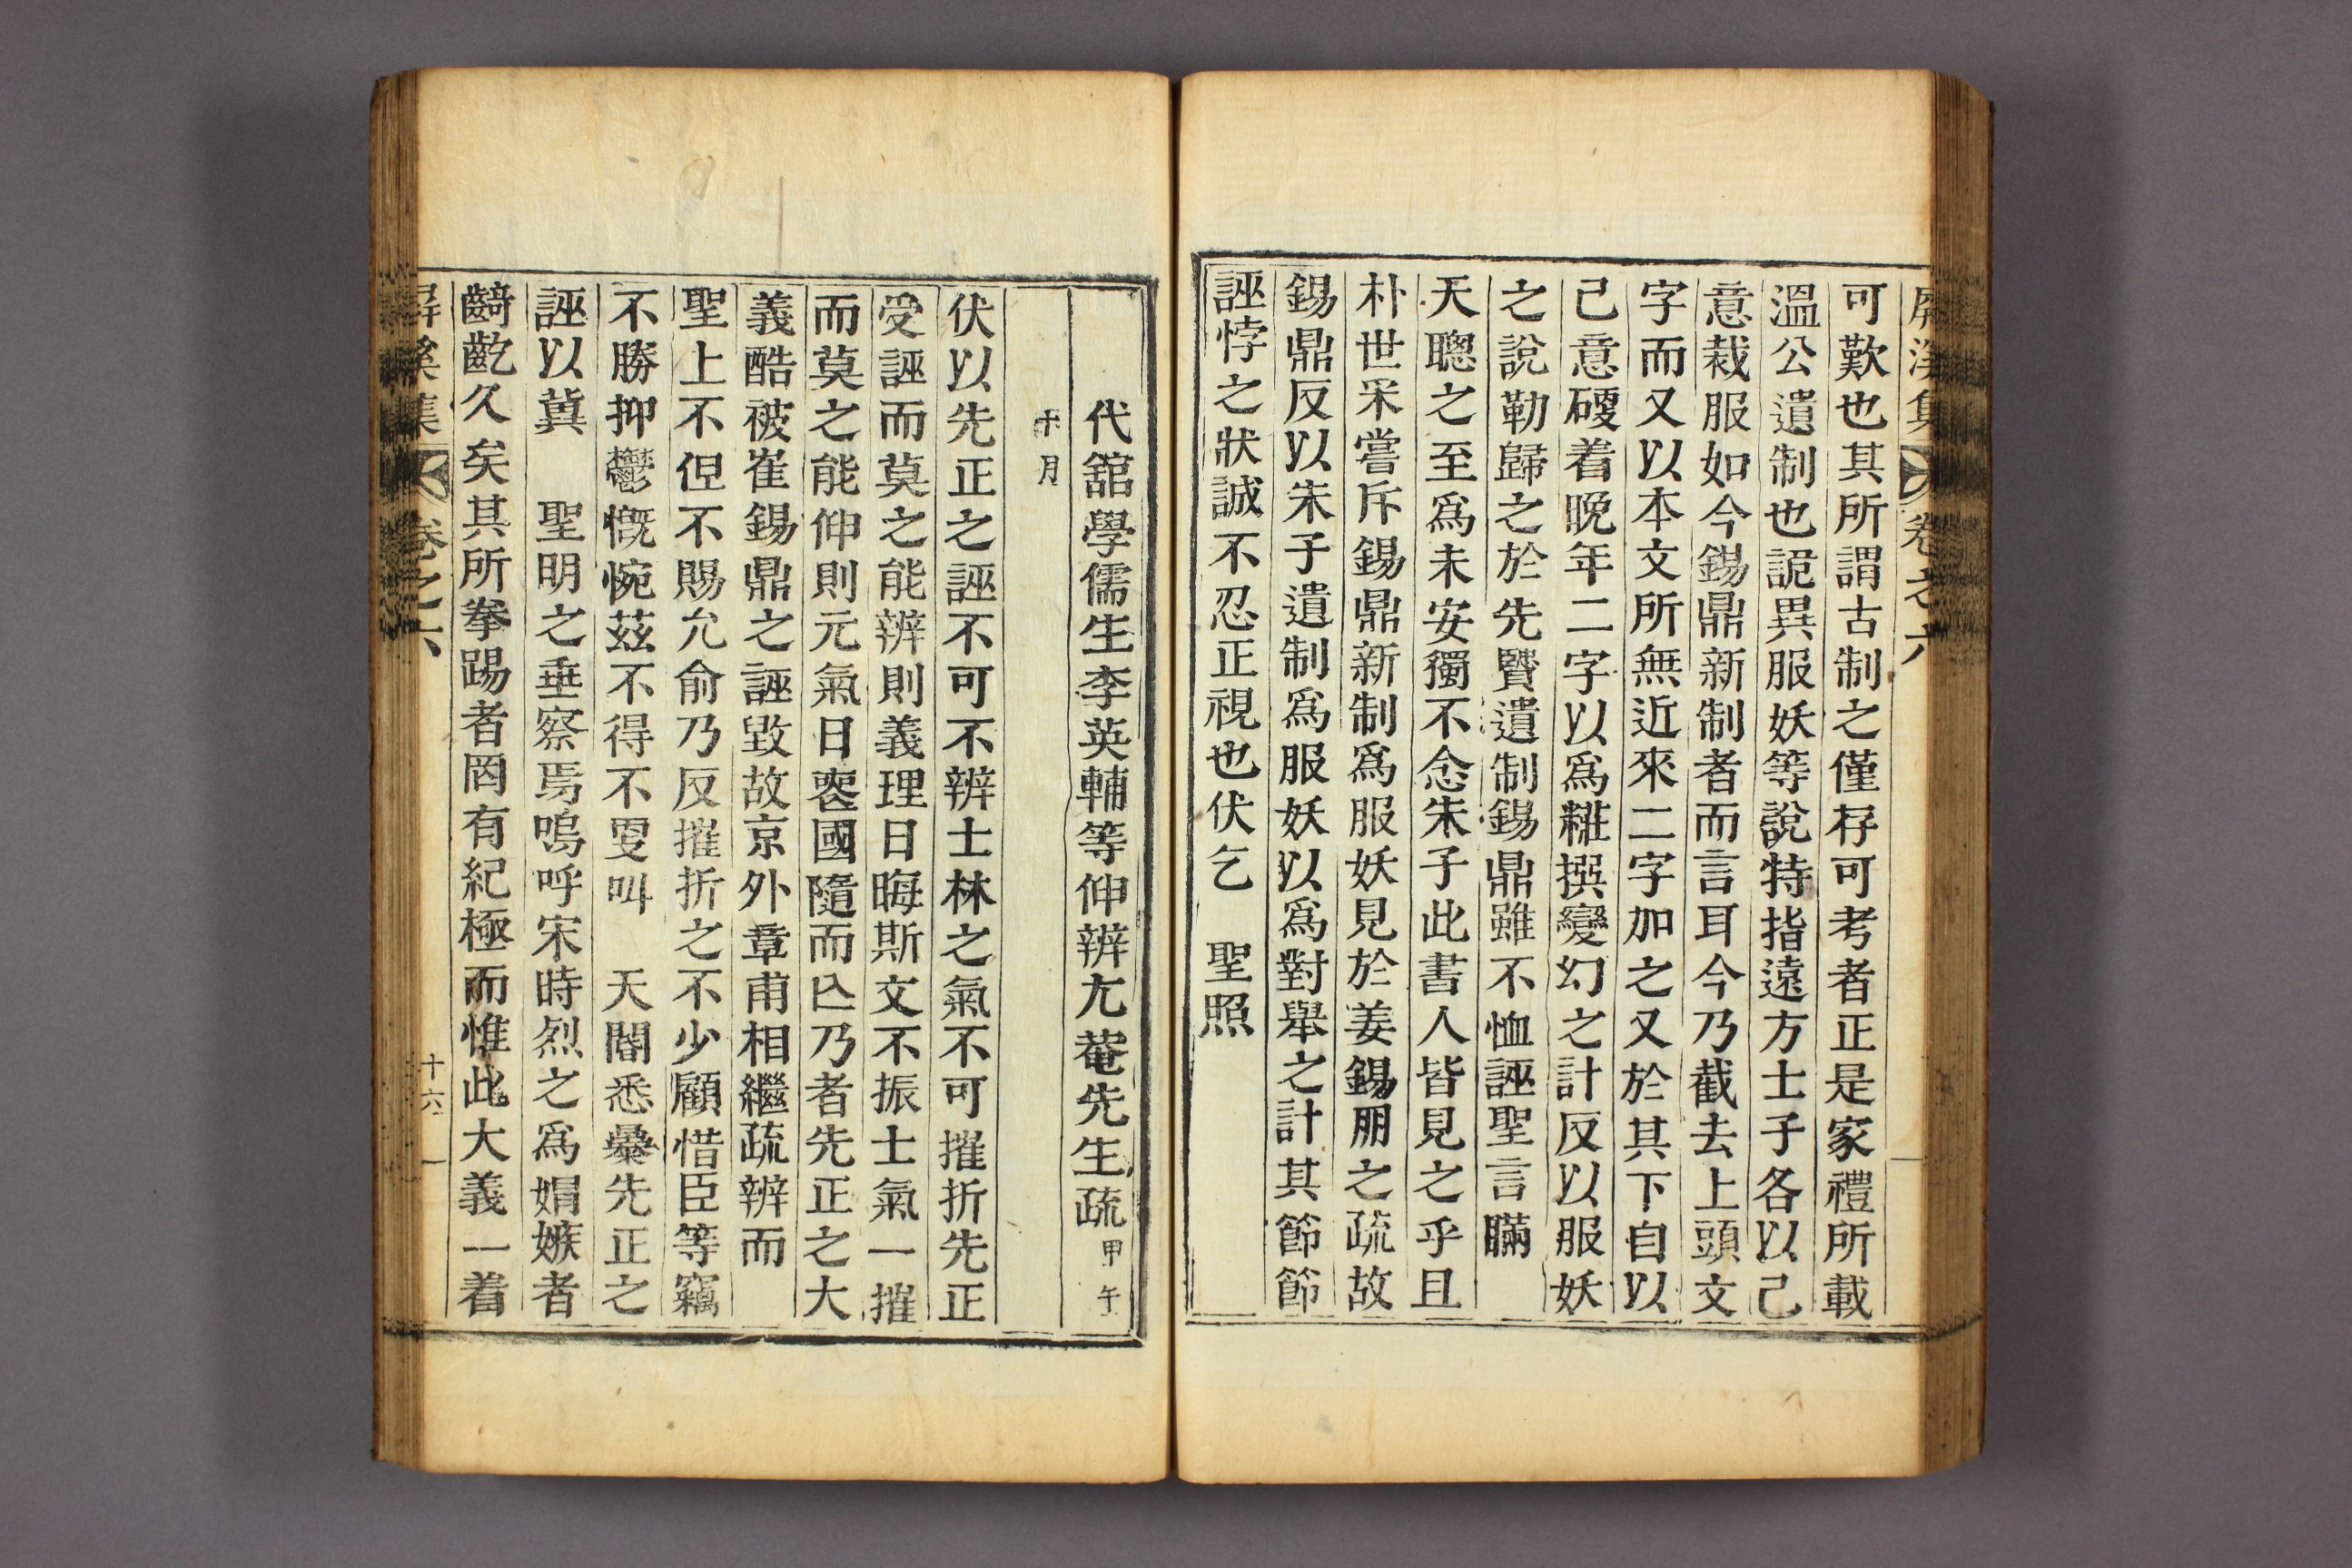 屛溪集 卷之六
可歎也其所謂古制之僅存可考者正是家禮所載
溫公遺制也詭異服妖等說特指遠方士子各以己
意裁服如今錫鼎新制者而言耳今乃截去上頭文
字而又以本文所無近來二字加之又於其下自以
己意硬着晩年二字以爲糚撰變幻之計反以服妖
之說勒歸之於先賢遺制錫鼎雖不恤誣聖言瞞
天聰之至爲未安獨不念朱子此書人皆見之乎且
朴世采嘗斥錫鼎新制爲服妖見於姜錫朋之疏故
錫鼎反以朱子遺制爲服妖以爲對擧之計其節節
誣悖之狀誠不忍正視也伏乞 聖照
代舘學儒生李英輔等伸辨尤菴先生疏 甲午
十月
伏以先正之誣不可不辨士林之氣不可摧折先正
受誣而莫之能辨則義理日晦斯文不振士氣一摧
而莫之能伸則元氣日喪國隨而亾乃者先正之大
義酷被崔錫鼎之誣毀故京外章甫相繼疏辨而
聖上不但不賜允兪乃反摧折之不少顧惜臣等竊
不勝抑鬱慨惋玆不得不更叫 天閽悉暴先正之
誣以冀 聖明之垂察焉嗚呼宋時烈之爲娼嫉者
齮齕久矣其所拳踢者罔有紀極而惟此大義一着
屛溪集 卷之六 十六